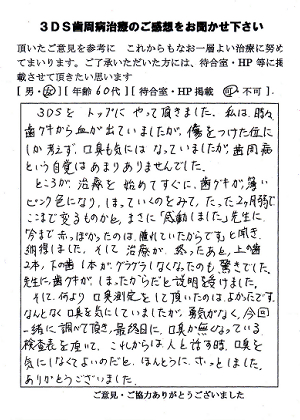 3DS歯周病治療のご感想をお聞かせ下さい
頂いたご意見を参考に これからもなお一層よい治療に努め
てまいります。ご了承いただいた方には、待合室・HP 等に掲
載させて頂きたい思います
[ 男・女 ] [ 年齢 60代 ] [ 待合室・HP 掲載 可 不可 ].
3DSを トップに やって頂きました。私は、時々
歯グキから血が出ていましたが、傷をつけた位に
しか考えず、口臭も気には なっていましたが、歯周病
という自覚は あまりありませんでした。
ところが、治療を 始めてすぐに、歯グキが、薄い
ピンク色になり、しまっていくのをみて、たった2ヶ月弱で
ここまで変るものかと、まさに「感動しました」。先生に
「今まで赤っぽかったのは、腫れていたからです」と聞き、
納得しました。そして 治療が、終ったあと、上の歯
2本、下の歯 1本が、グラグラしなくなったのも、驚きでした。
先生に歯グキが、しまったからだと説明を受けました。
そして、何より 口臭測定をして頂いたのは、よかったです。
なんとなく 口臭を気にしていましたが、勇気がなく、今回
一緒に調べて頂き、最終日に、口臭が無くなっている
検査表を頂いて、これからは 人と話す時、口臭を
気にしなくてよいのだと、ほんとうに、ホッとしました。
ありがとうございました。
ご意見・ご協力ありがとうございました